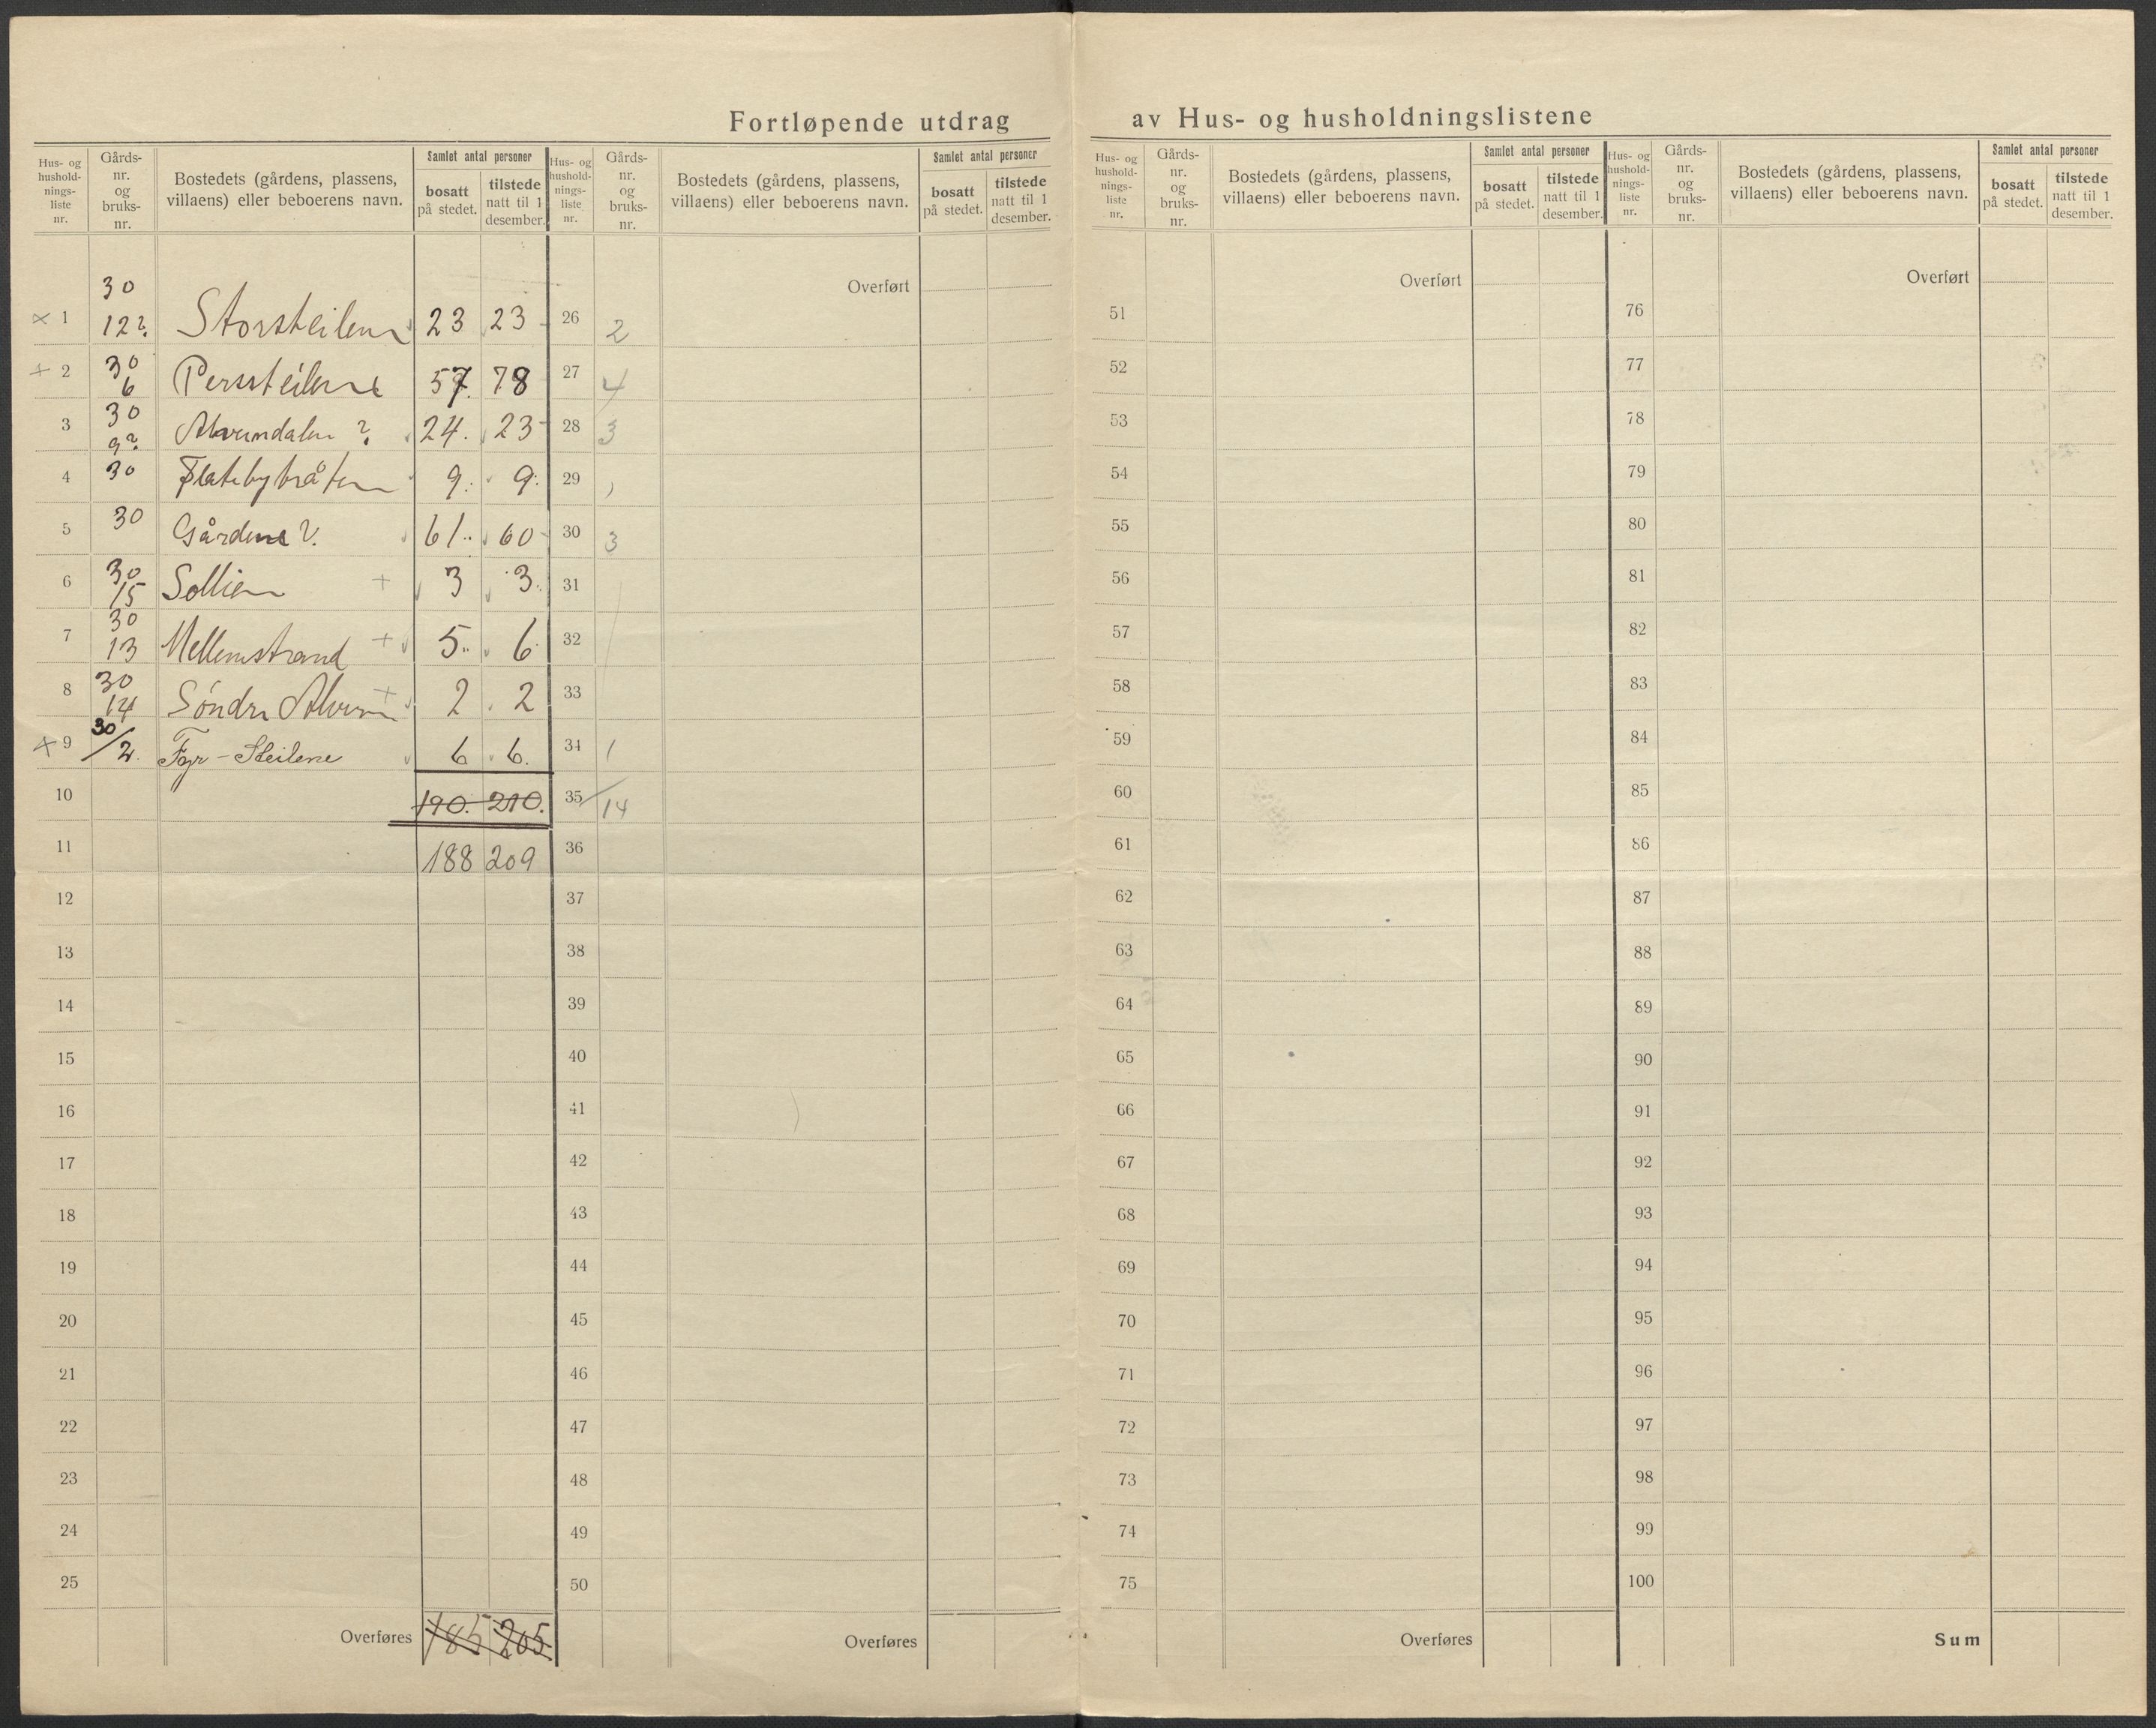 Fortløpende utdrag av Hus- og husholdningslistene
Hus- og hushold-nings-liste nr.
Gårds-nr. og bruks-nr.
Bostedets (gårdens, plassens, villaens) eller beboerens navn.
Samlet antal personer
bosatt på stedet.
tilstede natt til 1 desember.
Hus- og hushold-nings-liste nr.
Gårds-nr. og bruks-nr.
Bostedets (gårdens, plassens, villaens) eller beboerens navn.
Samlet antal personer
bosatt på stedet.
tilstede natt til 1 desember.
Hus- og hushold-nings-liste nr.
Gårds-nr. og bruks-nr.
Bostedets (gårdens, plassens, villaens) eller beboerens navn.
Samlet antal personer
bosatt på stedet.
tilstede natt til 1 desember.
Hus- og hushold-nings-liste nr.
Gårds-nr. og bruks-nr.
Bostedets (gårdens, plassens, villaens) eller beboerens navn.
Samlet antal personer
bosatt på stedet.
tilstede natt til 1 desember.
× 1 30 12? Storsteilene 23 23
+ 2 30 6 Perssteilene 57. 78
3 30 9? Alverndalen ? 24. 23
4 30 Flatebybråten 9. 9.
5 30 Gårdene ?. 61. 60
6 30/15 Sollien + 3 3.
7 30 13 Mellemstrand + 5. 6
8 30 14 Söndre Alvern + 2 2
+ 9 30/2. Fyr-Steilene 6 6.
10 190. 210.
11 188 209
12
13
14
15
16
17
18
19
20
21
22
23
24
25
Overføres 185 205
Overført
26 2
27 4
28 3
29
30 3
31
32
33
34 1
35 14
36
37
38
39
40
41
42
43
44
45
46
47
48
49
50
Overføres
Overført
51
52
53
54
55
56
57
58
59
60
61
62
63
64
65
66
67
68
69
70
71
72
73
74
75
Overføres
Overført
76
77
78
79
80
81
82
83
84
85
86
87
88
89
90
91
92
93
94
95
96
97
98
99
100
Sum